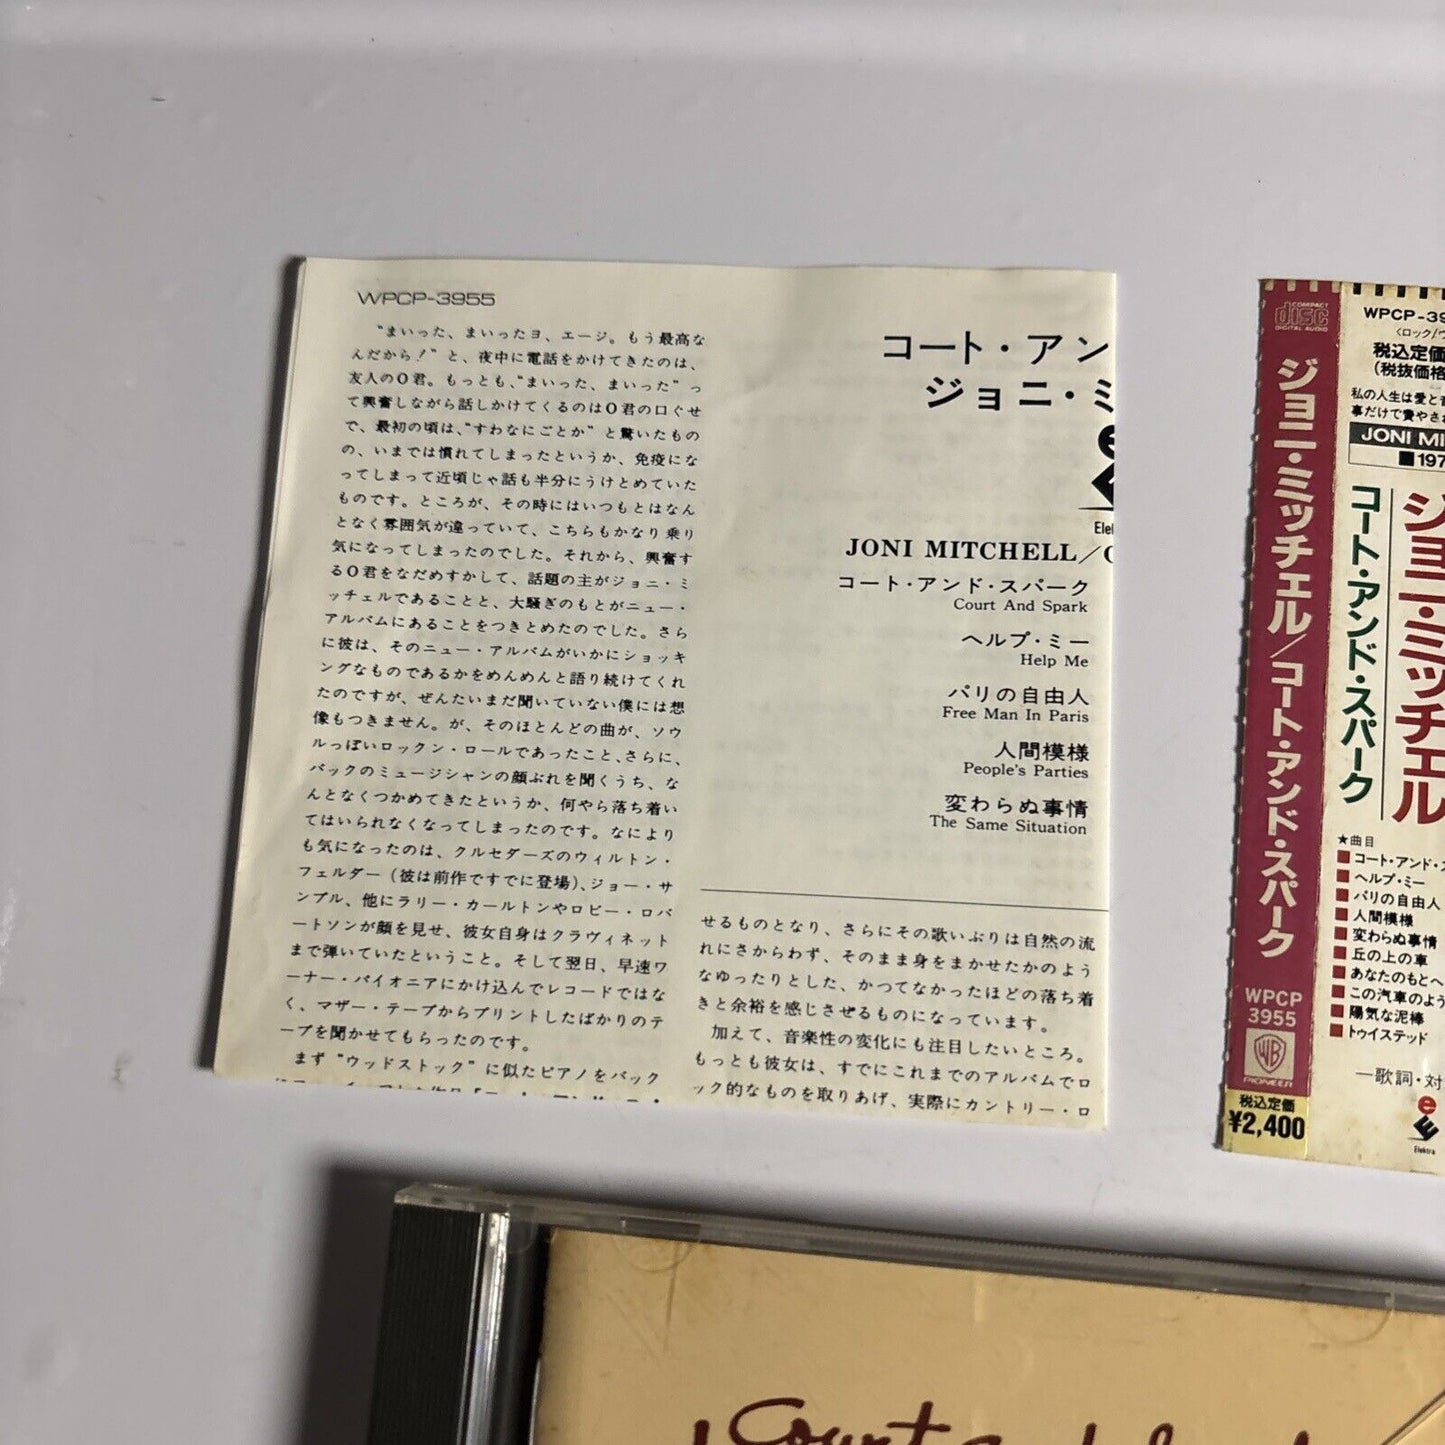 WPCP-3955
“まいった、まいったヨ、エージ。もう最高な
んだから！”と、夜中に電話をかけてきたのは、
友人のO君。もっとも、“まいった、まいった”っ
て興奮しながら話しかけてくるのはO君の口ぐせ
で、最初の頃は、“すわなにごとか”と驚いたもの
の、いまでは慣れてしまったというか、免疫にな
ってしまって近頃じゃ話も半分にうけとめていた
ものです。ところが、その時にはいつもとはなん
となく雰囲気が違っていて、こちらもかなり乗り
気になってしまったのでした。それから、興奮す
るO君をなだめすかして、話題の主がジョニ・ミ
ッチェルであることと、大騒ぎのもとがニュー・
アルバムにあることをつきとめたのでした。さら
に彼は、そのニュー・アルバムがいかにショッキ
ングなものであるかをめんめんと語り続けてくれ
たのですが、ぜんたいまだ聞いていない僕には想
像もつきません。が、そのほとんどの曲が、ソウ
ルっぽいロックン・ロールであったこと、さらに、
バックのミュージシャンの顔ぶれを聞くうち、な
んとなくつかめてきたというか、何やら落ち着い
てはいられなくなってしまったのです。なにより
も気になったのは、クルセダーズのウィルトン・
フェルダー（彼は前作ですでに登場）、ジョー・サ
ンプル、他にラリー・カールトンやロビー・ロバ
ートソンが顔を見せ、彼女自身はクラヴィネット
まで弾いていたということ。そして翌日、早速ワ
ーナー・パイオニアにかけ込んでレコードではな
く、マザー・テープからプリントしたばかりのテ
ープを聞かせてもらったのです。
まず“ウッドストック”に似たピアノをバック
コート・アン
ジョニ・ミ
JONI MITCHELL／
コート・アンド・スパーク
Court And Spark
ヘルプ・ミー
Help Me
パリの自由人
Free Man In Paris
人間模様
People's Parties
変わらぬ事情
The Same Situation
せるものとなり、さらにその歌いぶりは自然の流
れにさからわず、そのまま身をまかせたかのよう
なゆったりとした、かつてなかったほどの落ち着
きと余裕を感じさせるものになっています。
加えて、音楽性の変化にも注目したいところ。
もっとも彼女は、すでにこれまでのアルバムでロ
ック的なものを取りあげ、実際にカントリー・ロ
COMPACT
disc
DIGITAL AUDIO
ジョニ・ミッチェル／コート・アンド・スパーク
WPCP
3955
WB
PIONEER
税込定価
¥2,400
WPCP-39
〈ロック/
税込定価
(税抜価格
私の人生は愛と
事だけで費やさ
JONI MI
■197
ジョニ・ミッチェル
コート・アンド・スパーク
★曲目
■コート・アンド・
■ヘルプ・ミー
■パリの自由人
■人間模様
■変わらぬ事情
■丘の上の車
■あなたのもとへ
■この汽車のよう
■陽気な泥棒
■トゥイステッド
—歌詞・対
Elektra
Court